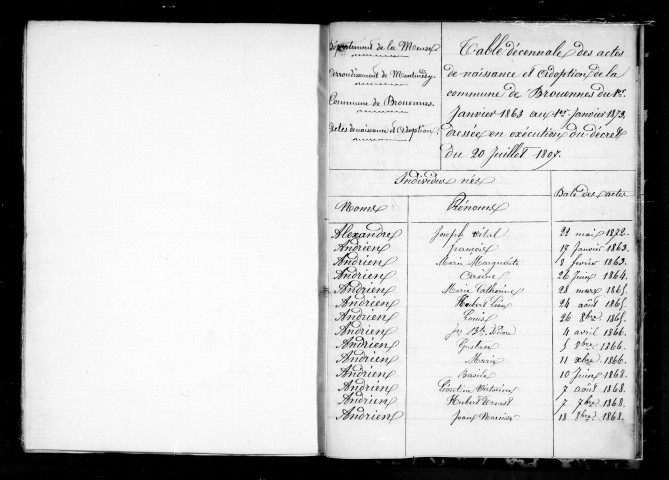 Département de la Meuse
Arrondissement de Montmédy.
Commune de Brouennes.
Actes de naissance et adoption.
Table décennale des actes
de naissance et adoption de la
commune de Brouennes du 1er.
Janvier 1863 au 1er. Janvier 1873,
dressée en exécution du décret
du 20 Juillet 1807.
Individus nés
Noms Prénoms Date des actes
Alexandre Joseph Vital 22 mai 1872.
Andrien François 17 Janvier 1863.
Andrien Marie Marguerite 8 février 1863.
Andrien 26 Juin 1864.
Andrien Marie Catherine 28 mars 1865.
Andrien Hubert Léon 24 août 1865.
Andrien Louis 26 8bre 1865.
Andrien Jn Bte 4 avril 1866.
Andrien Gustave 5 8bre 1866.
Andrien Marie 11 xbre 1866.
Andrien Basile 10 Juin 1868.
Andrien 7 août 1868.
Andrien Hubert Ernest 7 7bre 1868.
Andrien Jean 18 8bre 1868.